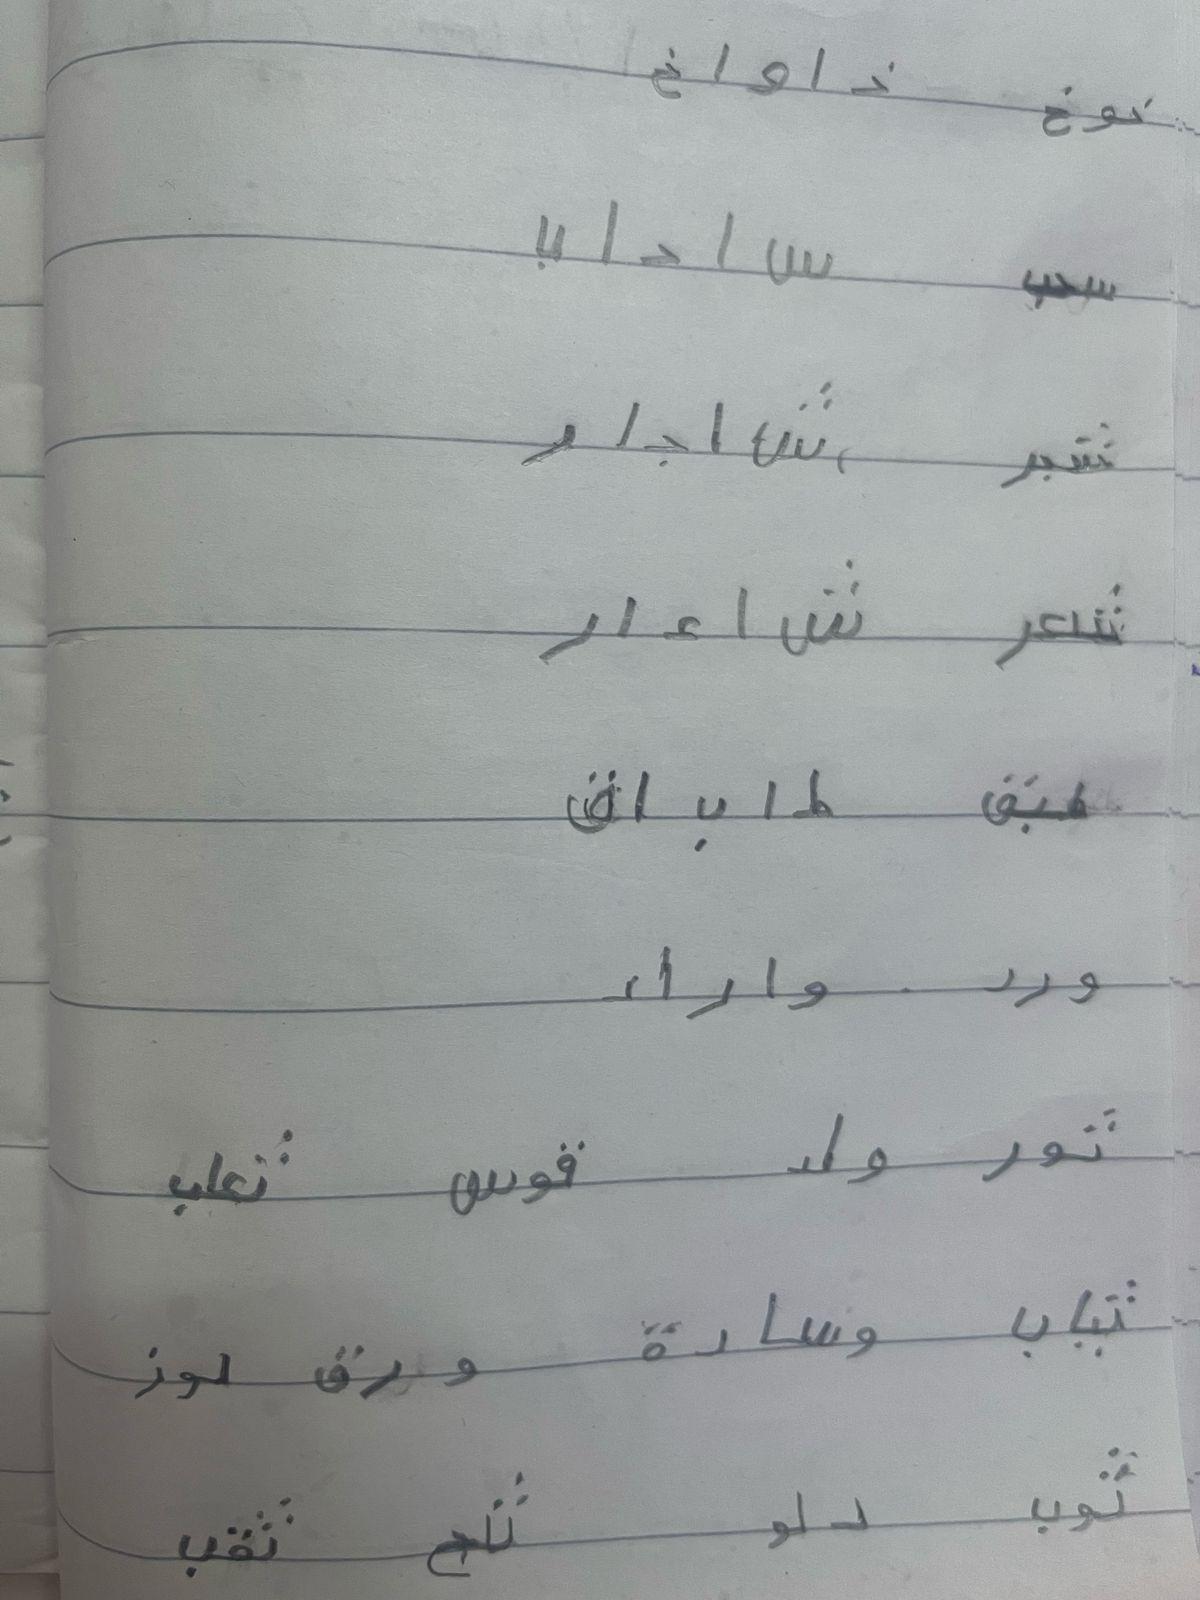 نوخ خ ا و ا خ
سحب س ا حـ ا ب
شجر ش ا جـ ا ر
شعر ش ا عـ ا ر
طبق ط ا بـ ا ق
ورد و ا ر ا د
ثور ولد قوس ثعلب
ثياب وسادة ورق لوز
ثوب دلو ثلج ثقب